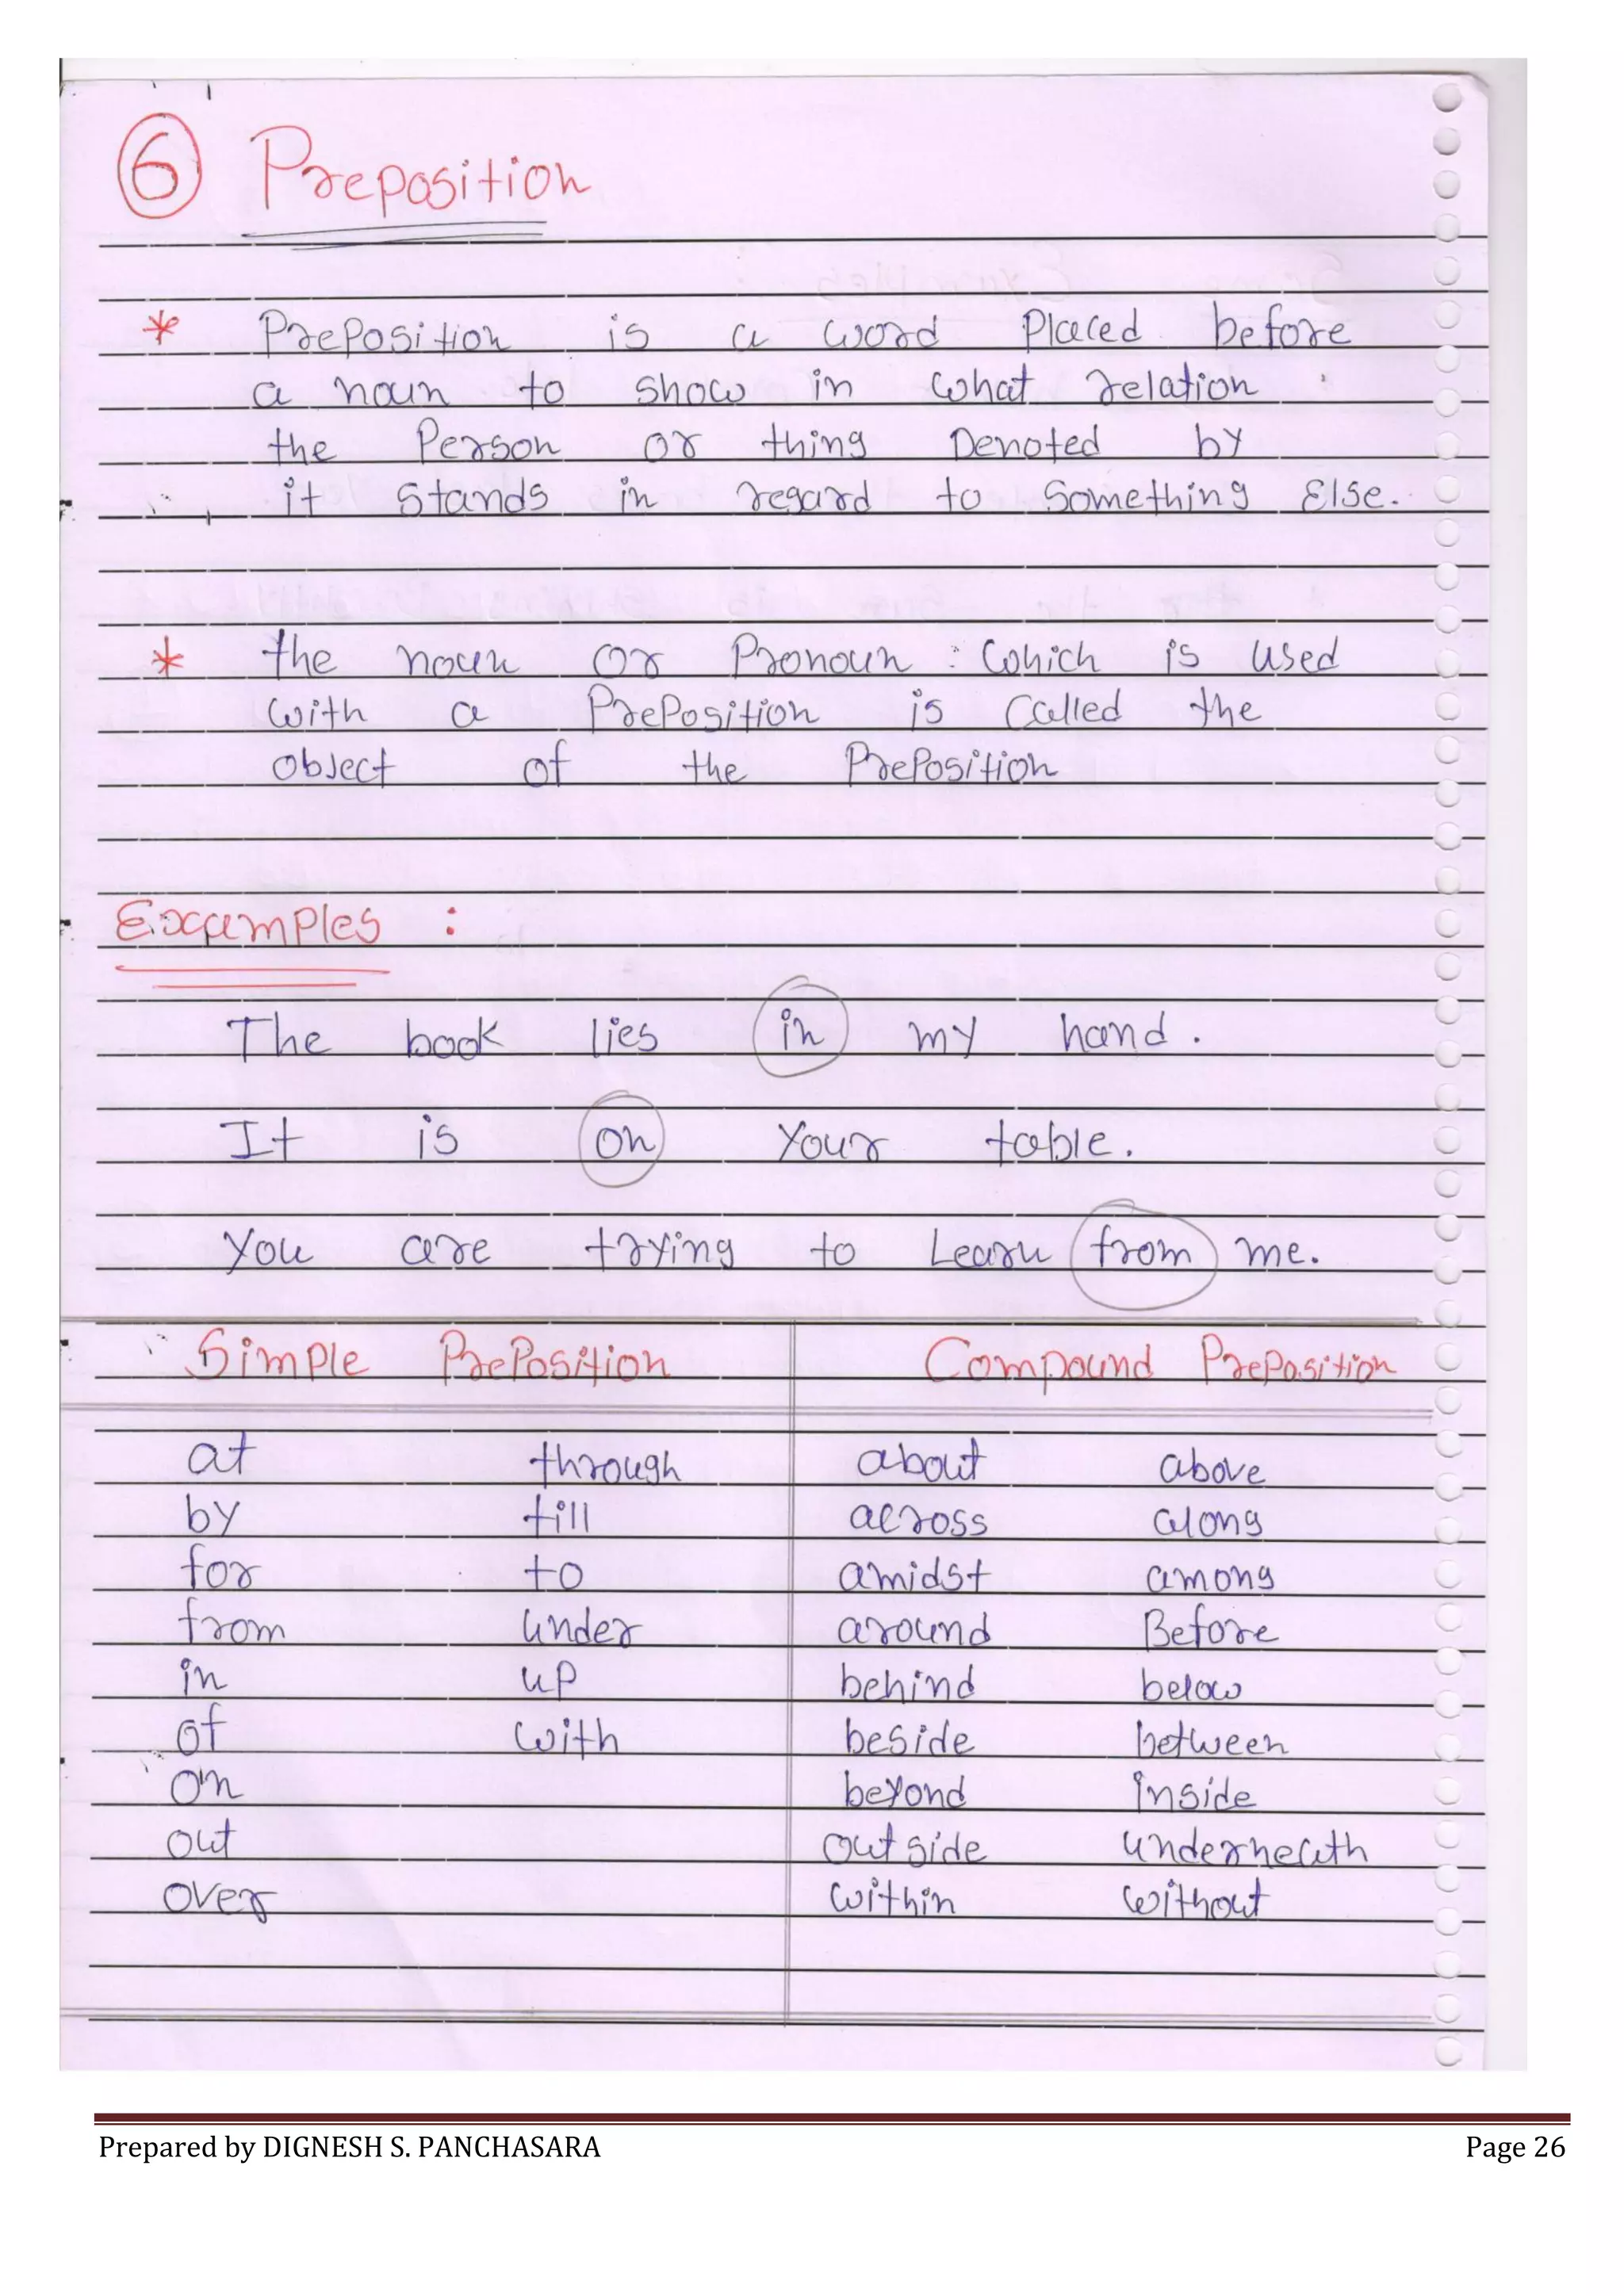 6 Preposition
* Preposition is a word Placed before
a noun to show in what relation
the Person or thing Denoted by
it stands in regard to Something Else.
* the noun or Pronoun : which is used
with a Preposition is called the
object of the Preposition
Examples :
The book lies in my hand.
It is on Your table.
You are trying to Learn from me.
Simple Preposition Compound Preposition
at through about above
by till across along
for to amidst among
from under around Before
in up behind below
of with beside between
on beyond inside
out outside underneath
over within without
Prepared by DIGNESH S. PANCHASARA Page 26